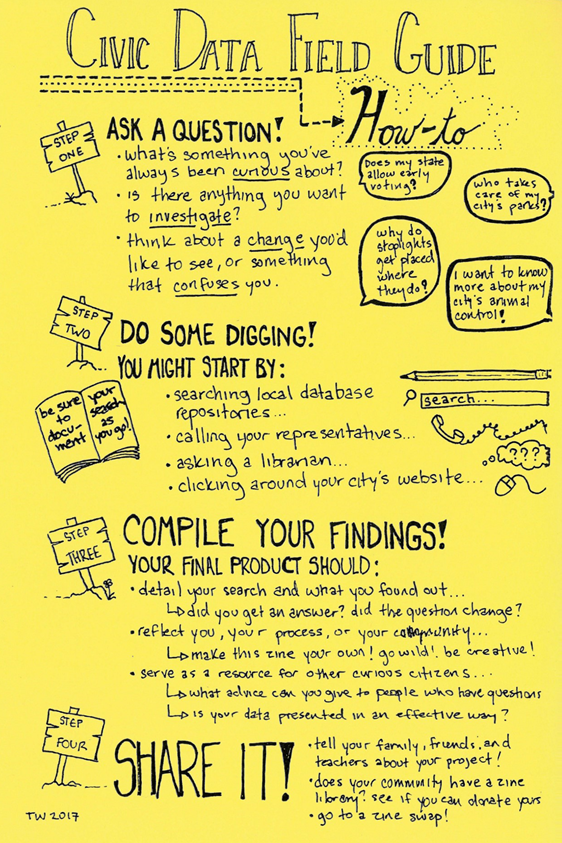 CIVIC DATA FIELD GUIDE
How-to
STEP
ONE
ASK A QUESTION!
• what's something you've
always been curious about?
• is there anything you want
to investigate?
• think about a change you'd
like to see, or something
that confuses you.
Does my state
allow early
voting?
who takes
care of my
city's parks?
why do
stoplights
get placed
where
they do?
I want to know
more about my
city's animal
control!
STEP
TWO
DO SOME DIGGING!
YOU MIGHT START BY:
be sure
to
docu-
ment
your
search
as
you go!
• searching local database
repositories...
• calling your representatives...
• asking a librarian...
• clicking around your city's website...
search...
???
STEP
THREE
COMPILE YOUR FINDINGS!
YOUR FINAL PRODUCT SHOULD:
• detail your search and what you found out...
↳ did you get an answer? did the question change?
• reflect you, your process, or your community...
↳ make this zine your own! go wild! be creative!
• serve as a resource for other curious citizens...
↳ what advice can you give to people who have questions
↳ is your data presented in an effective way?
STEP
FOUR
SHARE IT!
• tell your family, friends, and
teachers about your project!
• does your community have a zine
library? see if you can donate yours
• go to a zine swap!
TW 2017